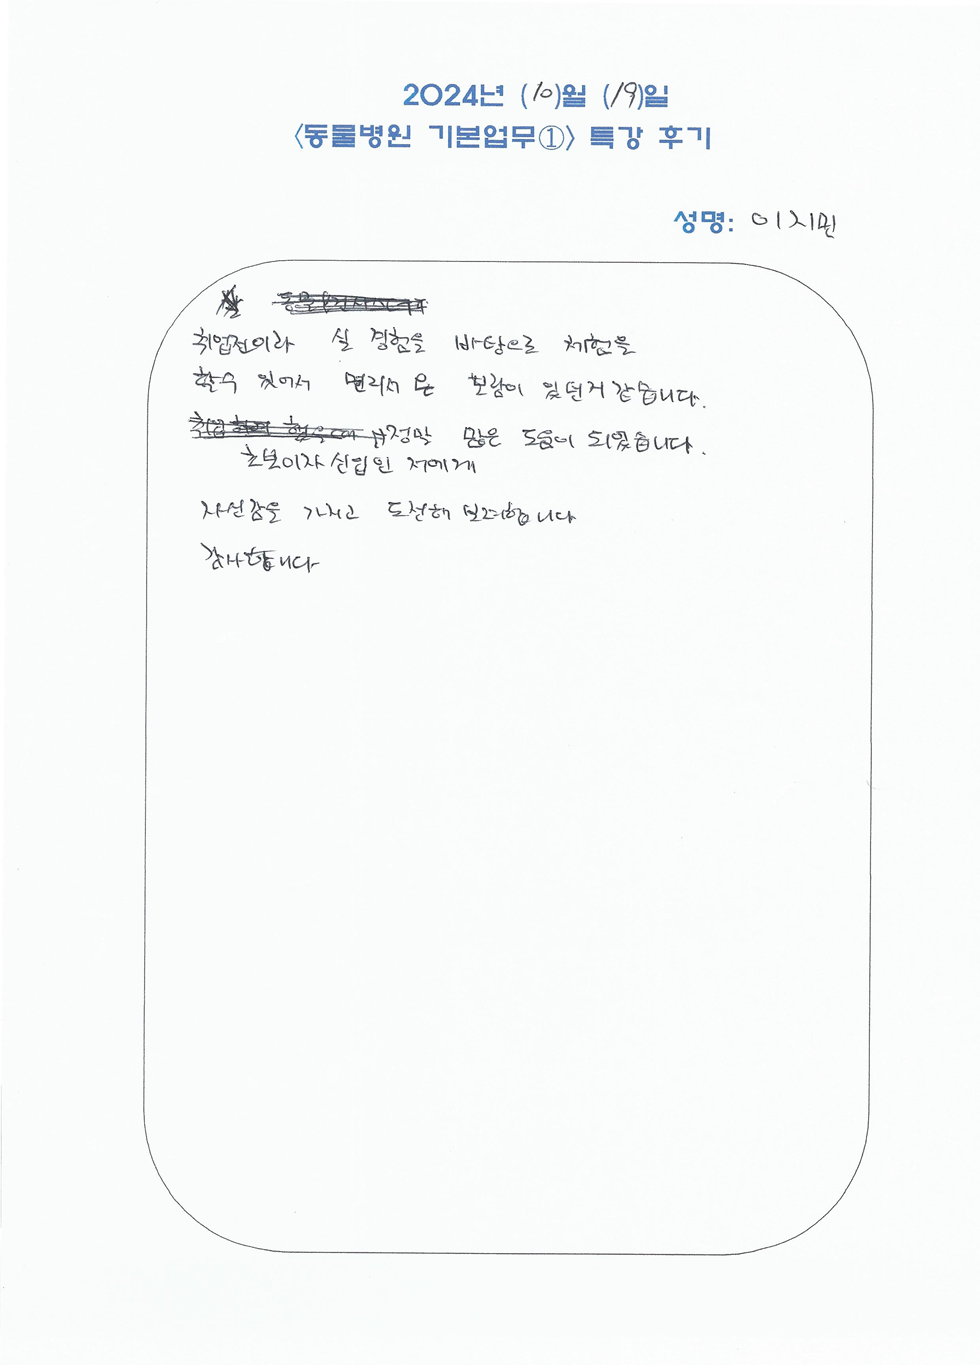 2024년 (10)월 (19)일
<동물병원 기본업무①> 특강 후기
성명: 이지민
취업전이라 실 경험을 바탕으로 체험을
할수 있어서 멀리서 온 보람이 있던거 같습니다.
정말 많은 도움이 되었습니다.
초보이자 신입인 저에게
자신감을 가지고 도전해 보려합니다
감사합니다